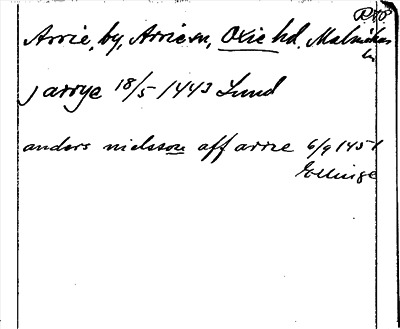 Arrie, by, Arrie sn, Oxie hd. Malmöhus
ln
j arrye 18/5 1443 Lund
anders nielsson aff arrie 6/9 1451
Ellinge